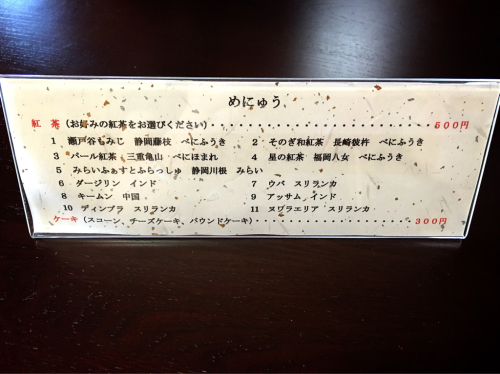 めにゅう
紅 茶（お好みの紅茶をお選びください）・・・・・・・・・・・・・・・・・・・・・・・・・・・・・・・・５００円
1 瀬戸谷もみじ 静岡藤枝 べにふうき 2 そのぎ和紅茶 長崎彼杵 べにふうき
3 パール紅茶 三重亀山 べにほまれ 4 星の紅茶 福岡八女 べにふうき
5 みらいふぁすとふらっしゅ 静岡川根 みらい
6 ダージリン インド 7 ウバ スリランカ
8 キームン 中国 9 アッサム インド
10 ディンブラ スリランカ 11 ヌワラエリア スリランカ
ケーキ（スコーン、チーズケーキ、パウンドケーキ）・・・・・・・・・・・・・・・・・・・・・・・３００円